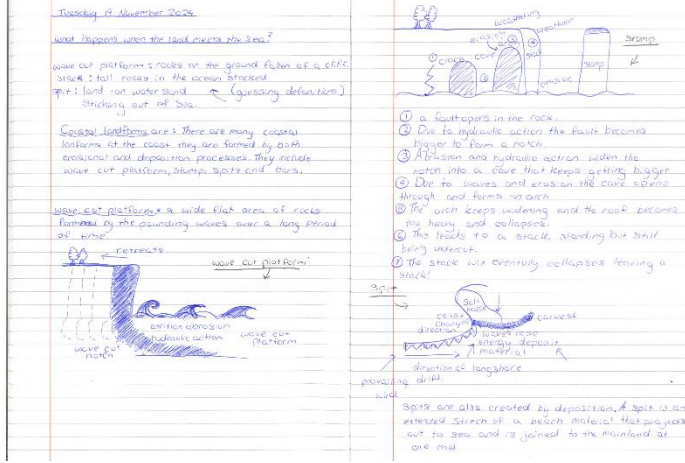 Tuesday 19 November 2024
What happens when the land meets the sea?
wave cut platform: rocks on the ground fallen of a cliff.
stack: tall rocks in the ocean stacked
spit: land on water sand
(guessing definitions)
Sticking out of sea.
Coastal landforms are: There are many coastal
lanforms at the coast they are formed by both
erosional and deposition processes. They include
wave cut platform, stump, spits and bars.
wave cut platform: a wide flat area of rocks
formed by the pounding waves over a long period
of time.
retreats
wave cut platform
attrition abrasion
hydraulic action
wave cut
platform
wave cut
notch
weathering
erosion
crack
cave
erosion
stump
stump
① a fault opens in the rock.
② Due to hydraulic action the fault becomes
bigger to form a notch.
③ Abrasion and hydraulic action widen the
notch into a cave that keeps getting bigger
④ Due to waves and erosion the cave opens
through and forms an arch
⑤ The arch keeps widening and the roof becomes
too heavy and collapses.
⑥ This leads to a stack, standing but still
being undercut.
⑦ The stack will eventually collapses leaving a
stack!
Spit
Salt
marsh
coast
changes
direction
curved
waves lose
energy deposit
material
direction of longshore
drift.
prevailing
wind
Spits are also created by deposition. A spit is an
extended strech of a beach material that projects
out to sea and is joined to the mainland at
one end.